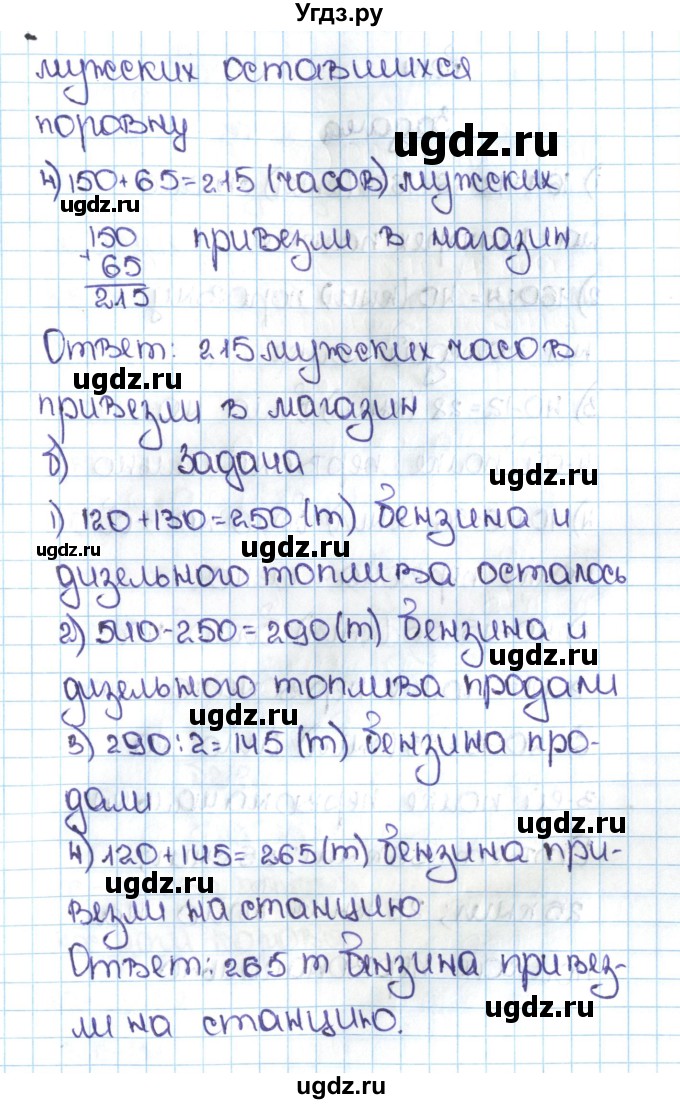 Угдз.ру
мужских оставшихся
поровну
ugdz.ru
4) 150+65=215 (часов) мужских
ugdz.ru
150 привезли в магазин
+ 65
215
Ответ: 215 мужских часов
ugdz.ru
привезли в магазин
б) Задача
ugdz.ru
1) 120+130=250 (т) бензина и
ugdz.ru ugdz.ru
дизельного топлива осталось
2) 540-250=290 (т) бензина и
ugdz.ru
дизельного топлива продали
ugdz.ru
3) 290:2=145 (т) бензина про-
дали
ugdz.ru
4) 120+145=265 (т) бензина при-
ugdz.ru
везли на станцию
Ответ: 265 т бензина привез-
ugdz.ru
ли на станцию.
ugdz.ru